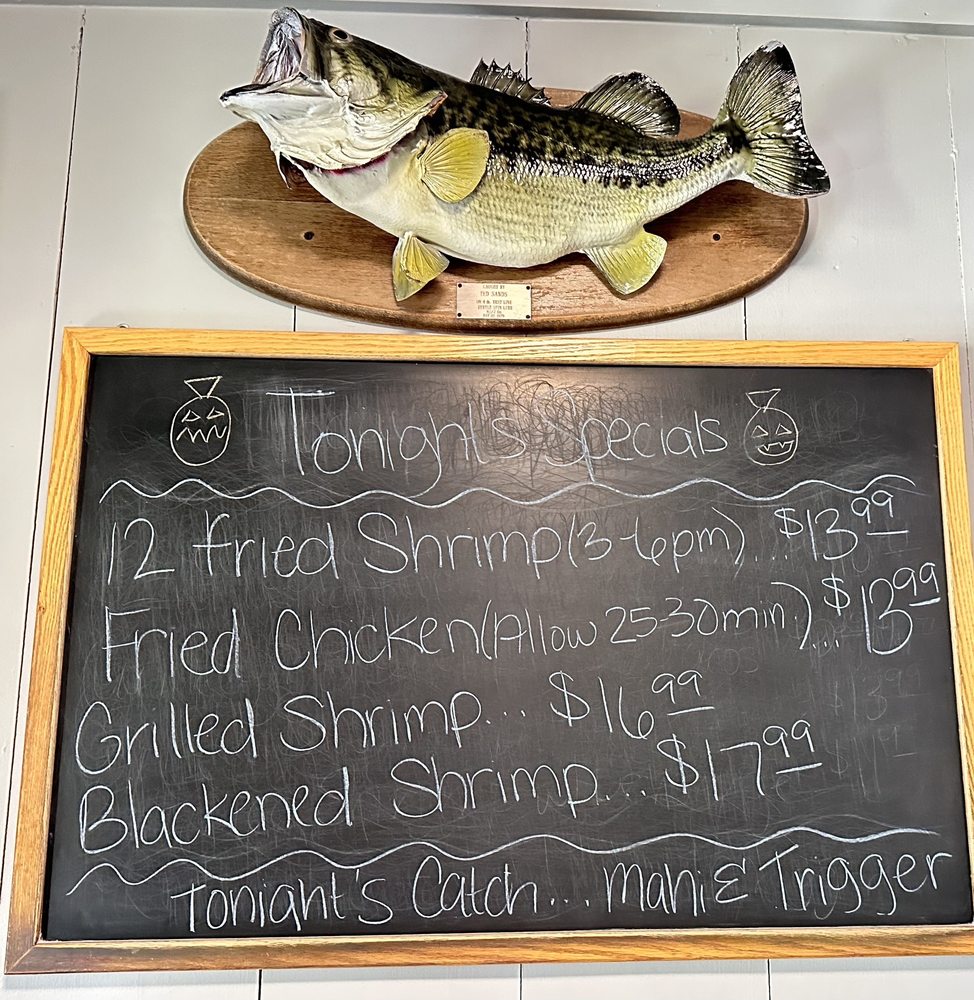 CAUGHT BY
TED SANDS
Tonight's Specials
12 Fried Shrimp (3-6pm)... $13.99
Fried Chicken (Allow 25-30min.)... $13.99
Grilled Shrimp... $16.99
Blackened Shrimp... $17.99
Tonight's Catch... Mahi & Trigger